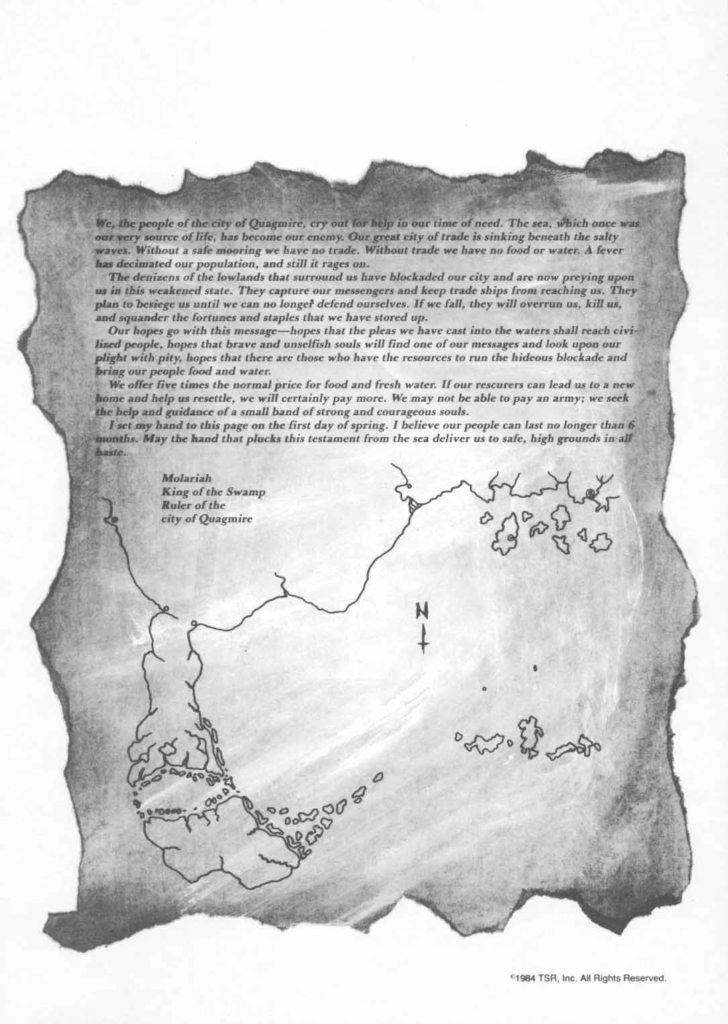 We, the people of the city of Quagmire, cry out for help in our time of need. The sea, which once was
our very source of life, has become our enemy. Our great city of trade is sinking beneath the salty
waves. Without a safe mooring we have no trade. Without trade we have no food or water. A fever
has decimated our population, and still it rages on.
The denizens of the lowlands that surround us have blockaded our city and are now preying upon
us in this weakened state. They capture our messengers and keep trade ships from reaching us. They
plan to besiege us until we can no longer defend ourselves. If we fall, they will overrun us, kill us,
and squander the fortunes and staples that we have stored up.
Our hopes go with this message—hopes that the pleas we have cast into the waters shall reach civi-
lized people, hopes that brave and unselfish souls will find one of our messages and look upon our
plight with pity, hopes that there are those who have the resources to run the hideous blockade and
bring our people food and water.
We offer five times the normal price for food and fresh water. If our rescurers can lead us to a new
home and help us resettle, we will certainly pay more. We may not be able to pay an army; we seek
the help and guidance of a small band of strong and courageous souls.
I set my hand to this page on the first day of spring. I believe our people can last no longer than 6
months. May the hand that plucks this testament from the sea deliver us to safe, high grounds in all
haste.
Molariah
King of the Swamp
Ruler of the
city of Quagmire
N
©1984 TSR, Inc. All Rights Reserved.